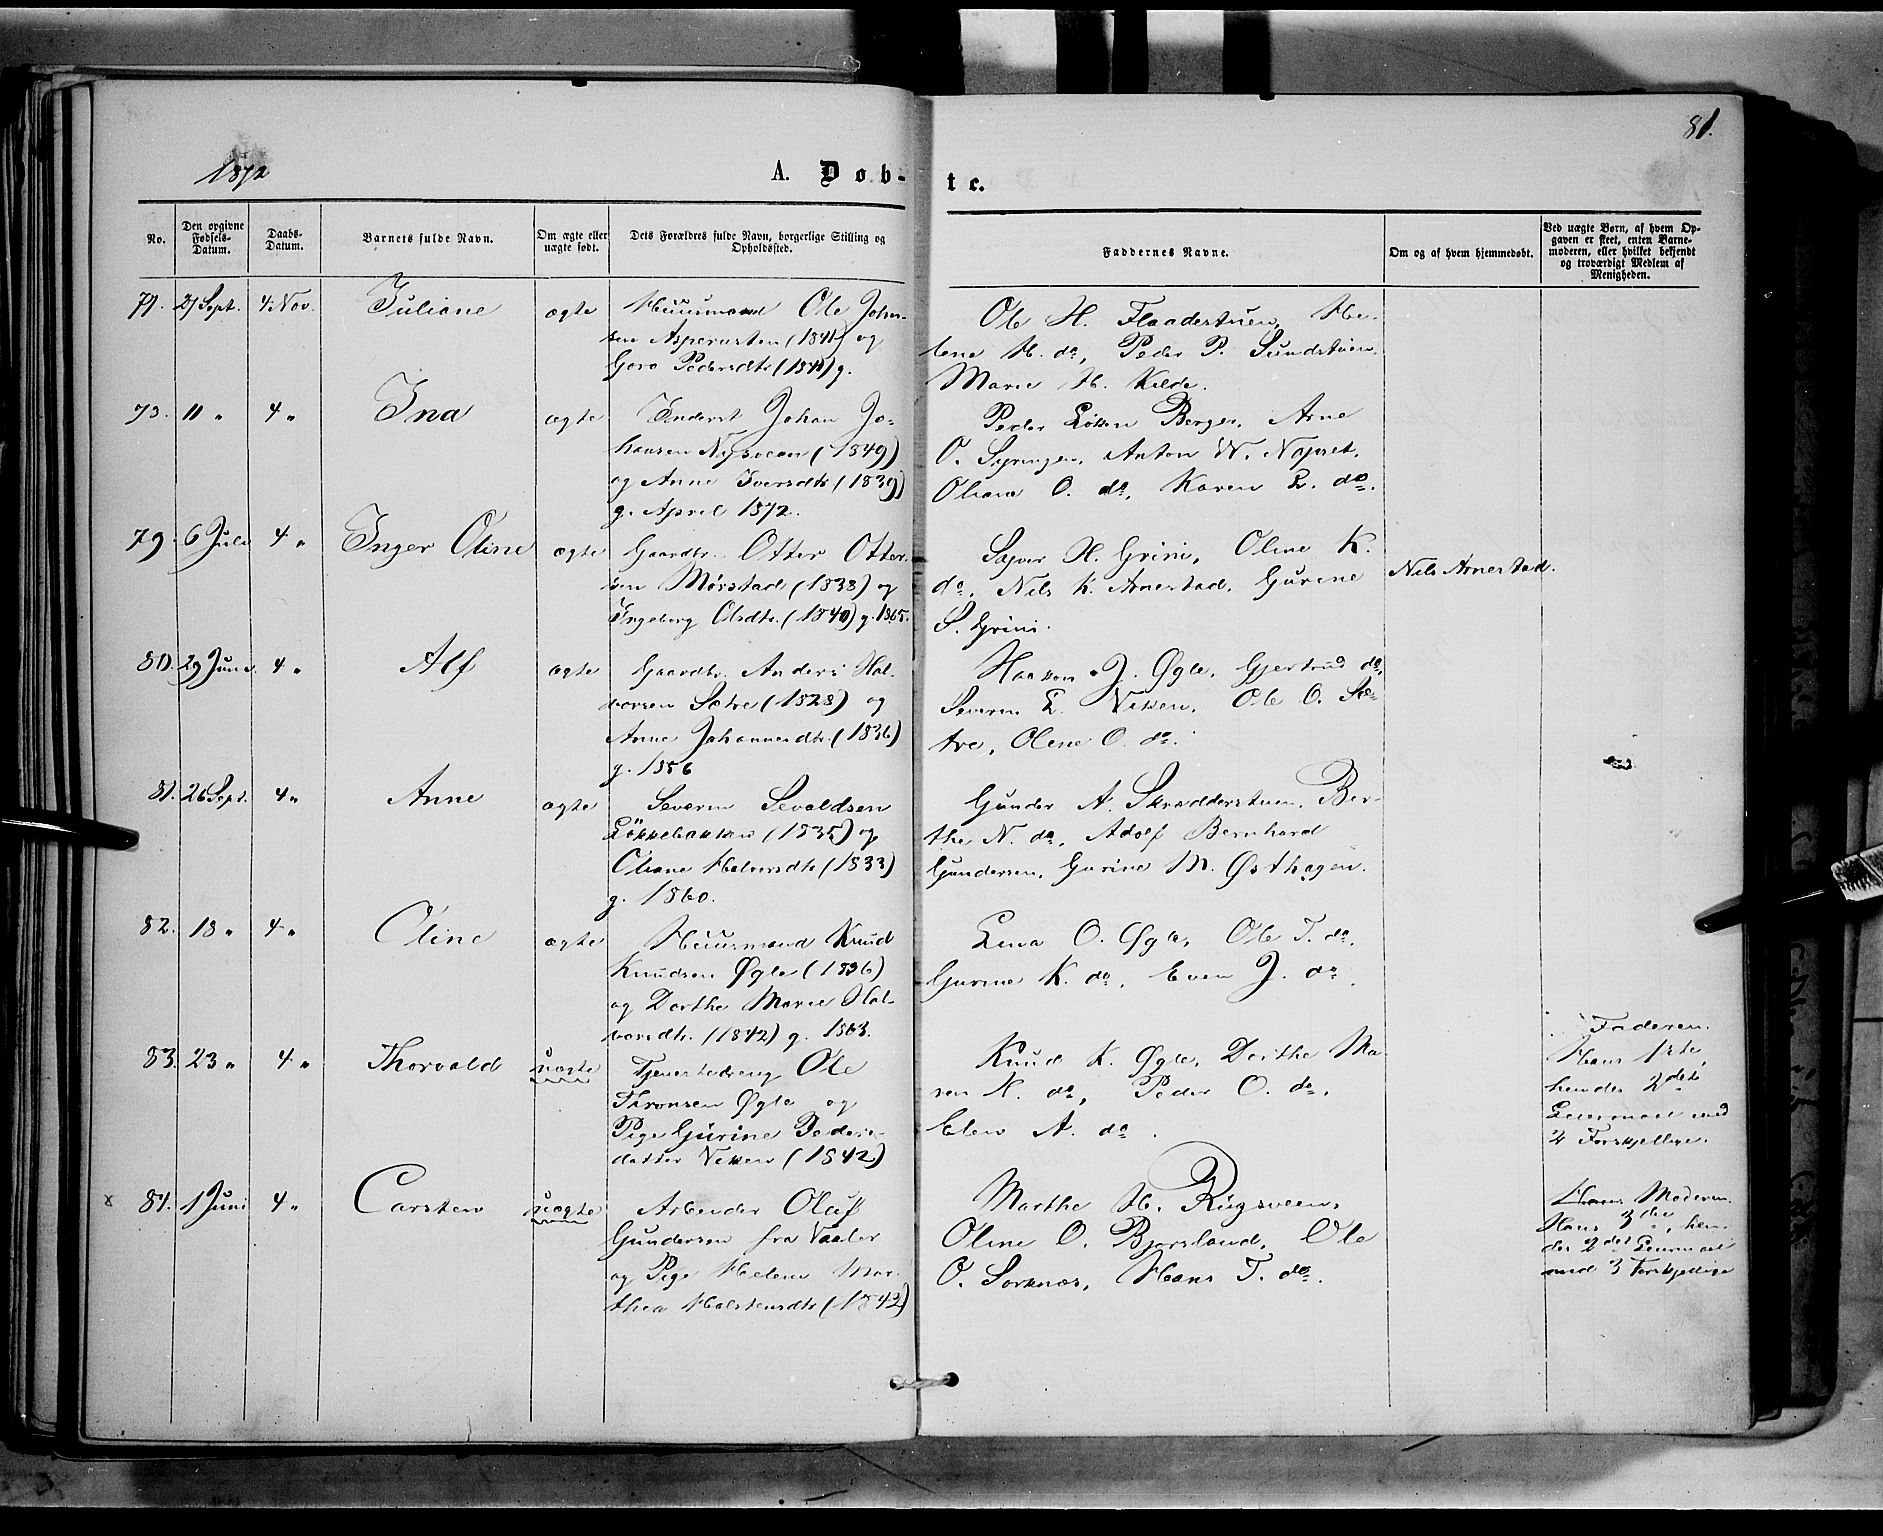 81.
1872
A. Døb-
te.
No.
Den opgivne Fødsels-Datum.
Daabs-Datum.
Barnets fulde Navn.
Om ægte eller uægte født.
Dets Forældres fulde Navn, borgerlige Stilling og Opholdssted.
Faddernes Navne.
Om og af hvem hjemmedøbt.
Ved uægte Børn, af hvem Opgaven er skeet, enten Barnemoderen, eller hvilket bekjendt og troværdigt Medlem af Menigheden.
27 Sept. 4 Nov. Juliane ægte Huusmand Ole John-
sen Asperusten (1841) og
Goro Pedersdtr
Ole H. Flaadestuen, He-
lene H. do, Peder P. Sundstuen,
Marie H. Kilde.
11 " 4 " Ina ægte Inderst Johan Jo-
hansen Nysveen (1849)
og Anne Iversdtr (1839)
g. April 1872.
Peder Berger, Arne
O. Anton N.
Oliane O. do, Karen L. do.
79. 6 Juli 4 " Inger Oline ægte Gaardbr. Otter Otter-
sen Mørstad (1838) og
Ingeborg Olsdtr. (1840) g. 1865.
H. Grini, Oline K.
do, Nils K. Arnestad, Gurine
S. Grini.
Nils Arnestad.
80. 29 Juni 4 " Alf ægte Gaardbr. Anders Hal-
vorsen Sætre (1828) og
Anne Johannesdtr. (1836)
g. 1856
Haakon J. Øgle, Gjertrud do,
Severin L. Ole O. Sæ-
tre, Olene O. do.
81. 26 Sept. 4 " Anne ægte Severin Sevaldsen
Løkkebakken (1835) og
Oliane Halvorsdtr (1833)
g. 1860.
Gunder A. Skrædderstuen, Ber-
the N. do, Adolf Bernhard
Gundersen, Gurine M. Østhagen.
82. 18 " 4 " Oline ægte Huusmand Knud
Knudsen Øgle (1836)
og Dorthe Marie Hal-
vorsdtr. (1842) g. 1863.
Lina O. Øgle, Ole T. do,
Gurine K. do, Even J. do.
83. 23 " 4 " Thorvald uægte Tjenestedreng Ole
Thronsen Øgle og
Pige Gurine Peders-
datter Viken (1842)
Knud K. Øgle, Dorthe Ma-
ren N. do, Peder O. do,
Elen A. do.
Faderen.
Hans 1ste,
hendes 2det
Leiermaal med
2 Forskjellige.
84. 1 Juni 4 " Carsten uægte Arbeider Oluf
Gundersen fra Vaaler
og Pige Helene Mar-
thea Halstensdtr (1842)
Marthe H. Rugsveen,
Oline O. Bjørsland, Ole
O. Sorknæs, Hans T. do.
Moderen.
Hans 3die, hen-
des 2det Leiermaal
med 3 Forskjellige